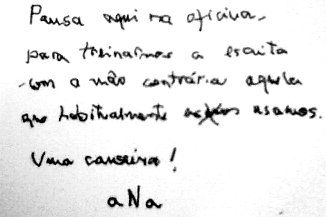 Pausa aqui na oficina
para treinarmos a escrita
com a mão contrária aquela
que habitualmente usamos.
Uma canseira!
aNa